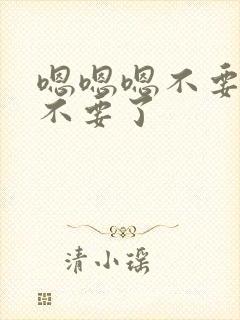 嗯嗯嗯不要
不要了
清小瑶